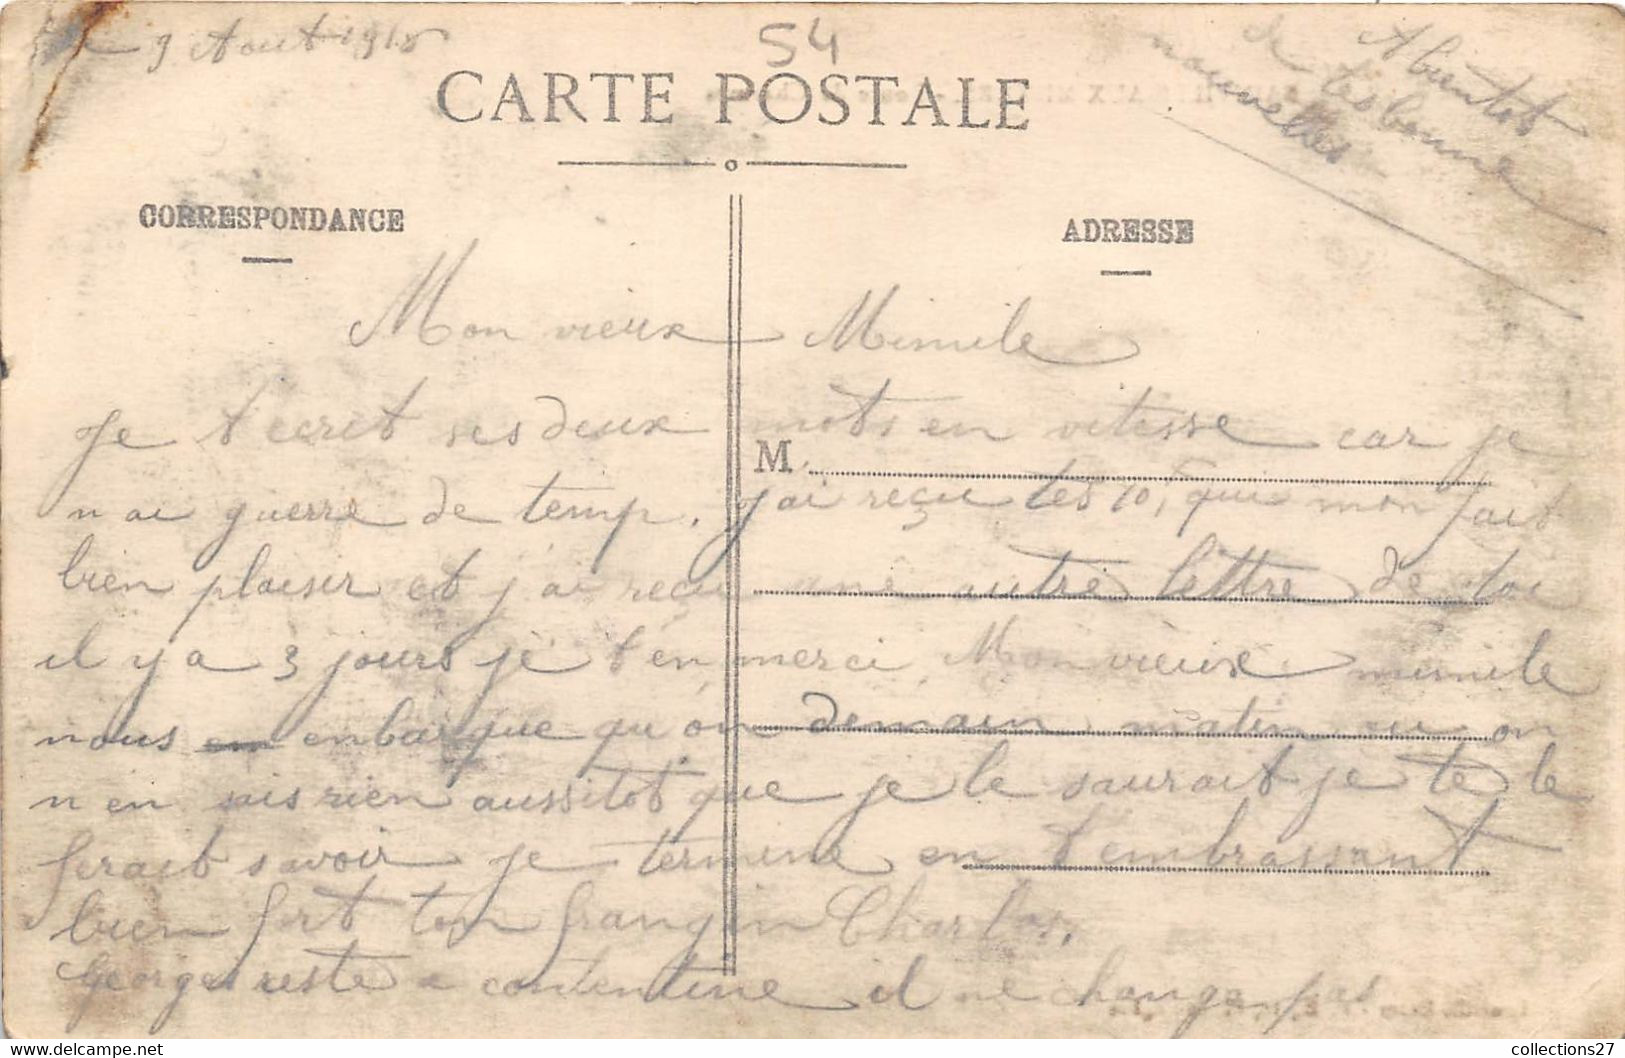 9 Aout 1918
54
Abientot
de tes bonne
nouvelles
CARTE POSTALE
CORRESPONDANCE
ADRESSE
M
Mon vieux Mimile
Je t'ecrit ses deux mots en vitesse car je
n ai guerre de temp. J'ai reçu tes 10, qui mon fait
bien plaisir et j'ai reçu une autre lettre de toi
il y a 3 jours je t'en merci Mon vieux mimile
nous en enbarque qu'on demain matin ou on
n en sais rien aussitot que je le saurait je te le
ferait savoir je termine en t'embrassant
bien fort ton frangin Charlot.
Georges reste a contentine il ne change pas
collections27